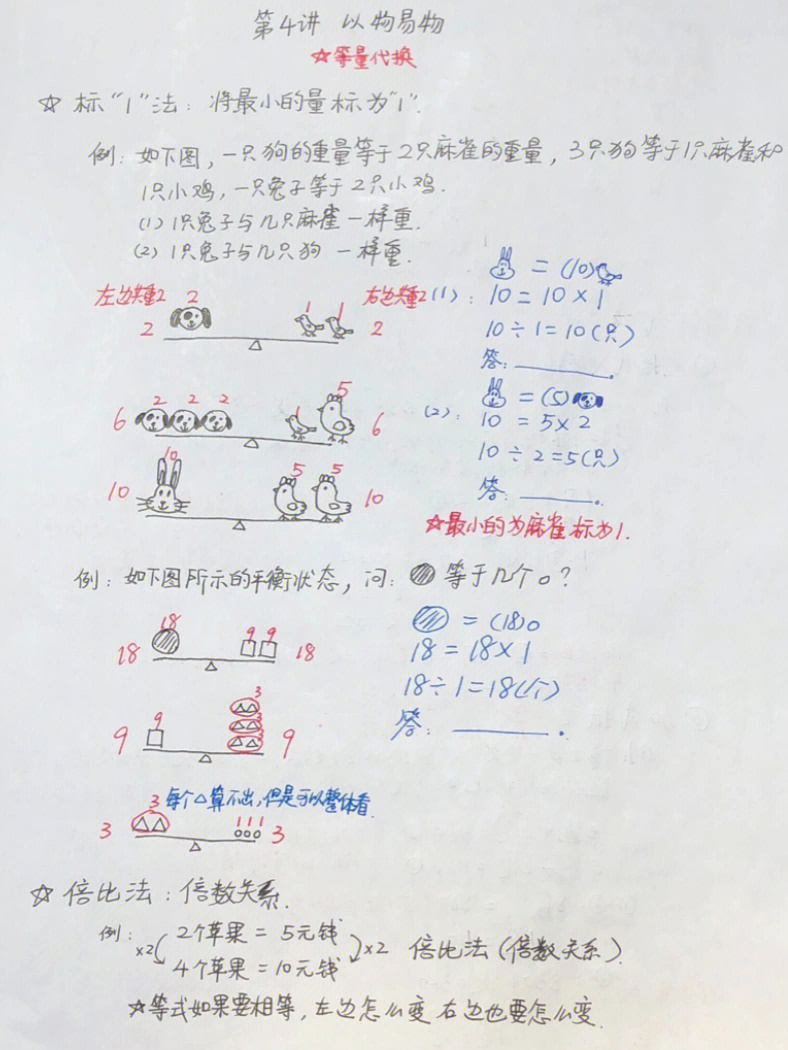 第4讲 以物易物
☆等量代换
☆ 标“1”法：将最小的量标为“1”.
例：如下图，一只狗的重量等于2只麻雀的重量，3只狗等于1只麻雀和
1只小鸡，一只兔子等于2只小鸡.
(1) 1只兔子与几只麻雀一样重.
(2) 1只兔子与几只狗 一样重.
= (10)
左边共重2 2 右边共重2 (1)： 10 = 10 × 1
2 1 1 2
10 ÷ 1 = 10 (只)
答：______.
= (5)
6 2 2 2 1 5 6 (2)： 10 = 5 × 2
10 ÷ 2 = 5 (只)
10 10 5 5 10
答：______.
☆最小的为麻雀 标为1.
例：如下图所示的平衡状态，问： 等于几个○？
18 = (18)○
18 9 9 18 18 = 18 × 1
18 ÷ 1 = 18 (个)
9 9 3 3 3 9 答：______.
3 每个△算不出，但是可以整体看.
3 1 1 1 3
☆ 倍比法：倍数关系.
例： 2个苹果 = 5元钱
×2 ×2 倍比法 (倍数关系).
4个苹果 = 10元钱
☆等式如果要相等，左边怎么变 右边也要怎么变.